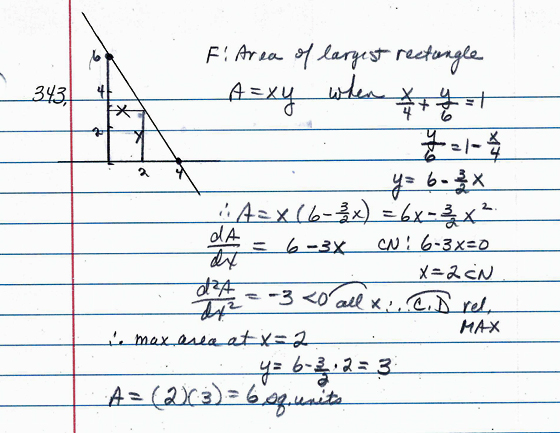 F: Area of largest rectangle
343.
A = xy when x/4 + y/6 = 1
y/6 = 1 - x/4
y = 6 - 3/2 x
∴ A = x(6 - 3/2 x) = 6x - 3/2 x²
dA/dx = 6 - 3x CN: 6 - 3x = 0
x = 2 CN
d²A/dx² = -3 < 0 all x ∴ C.D rel.
MAX
∴ max area at x = 2
y = 6 - 3/2 · 2 = 3
A = (2)(3) = 6 sq. units
6
4
2
x
y
2
4